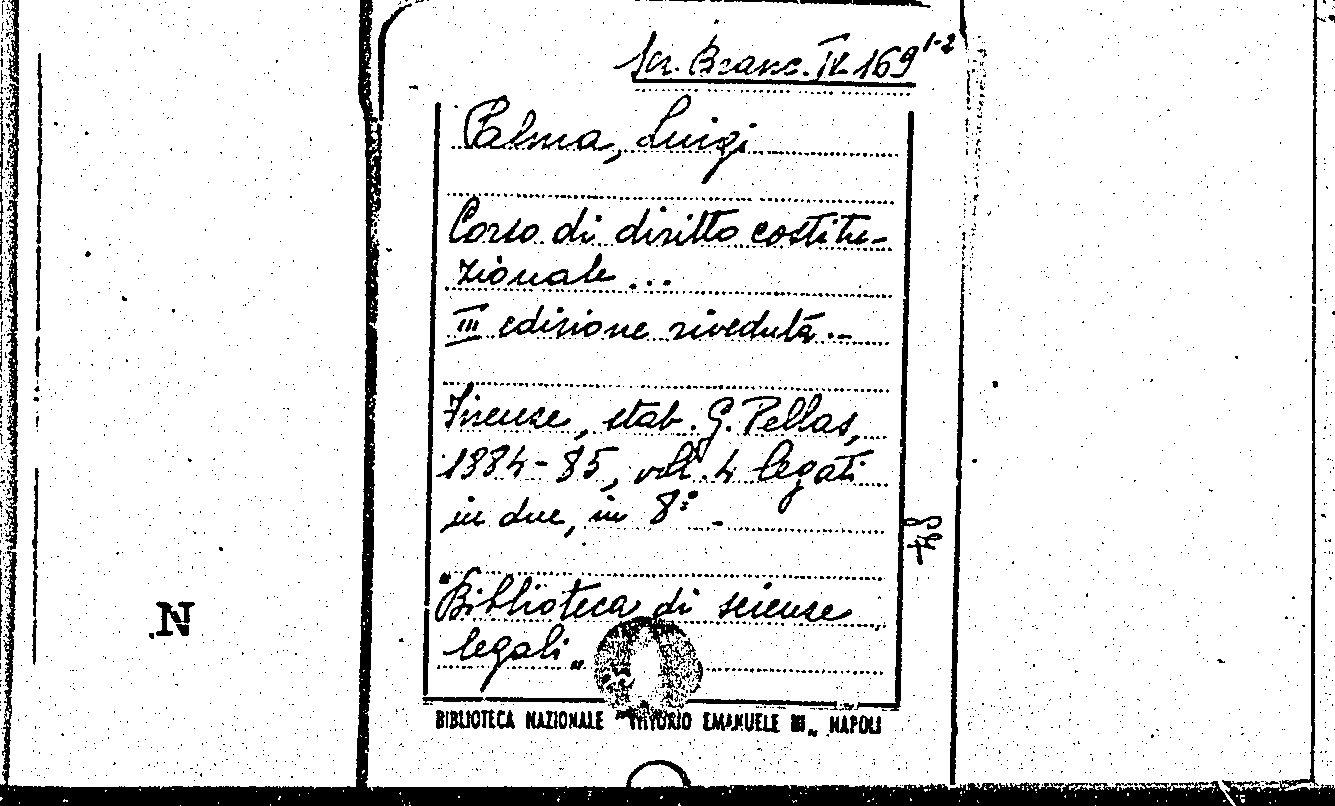 Scr. Branc. IV 169 1-2
Palma, Luigi
Corso di diritto costitu-
zionale ...
III edizione riveduta ..
Firenze, stab. G. Pellas,
1884-85, voll. 4 legati
in due, in 8° -
"Biblioteca di scienze
legali"
BIBLIOTECA NAZIONALE "VITTORIO EMANUELE III" NAPOLI
N